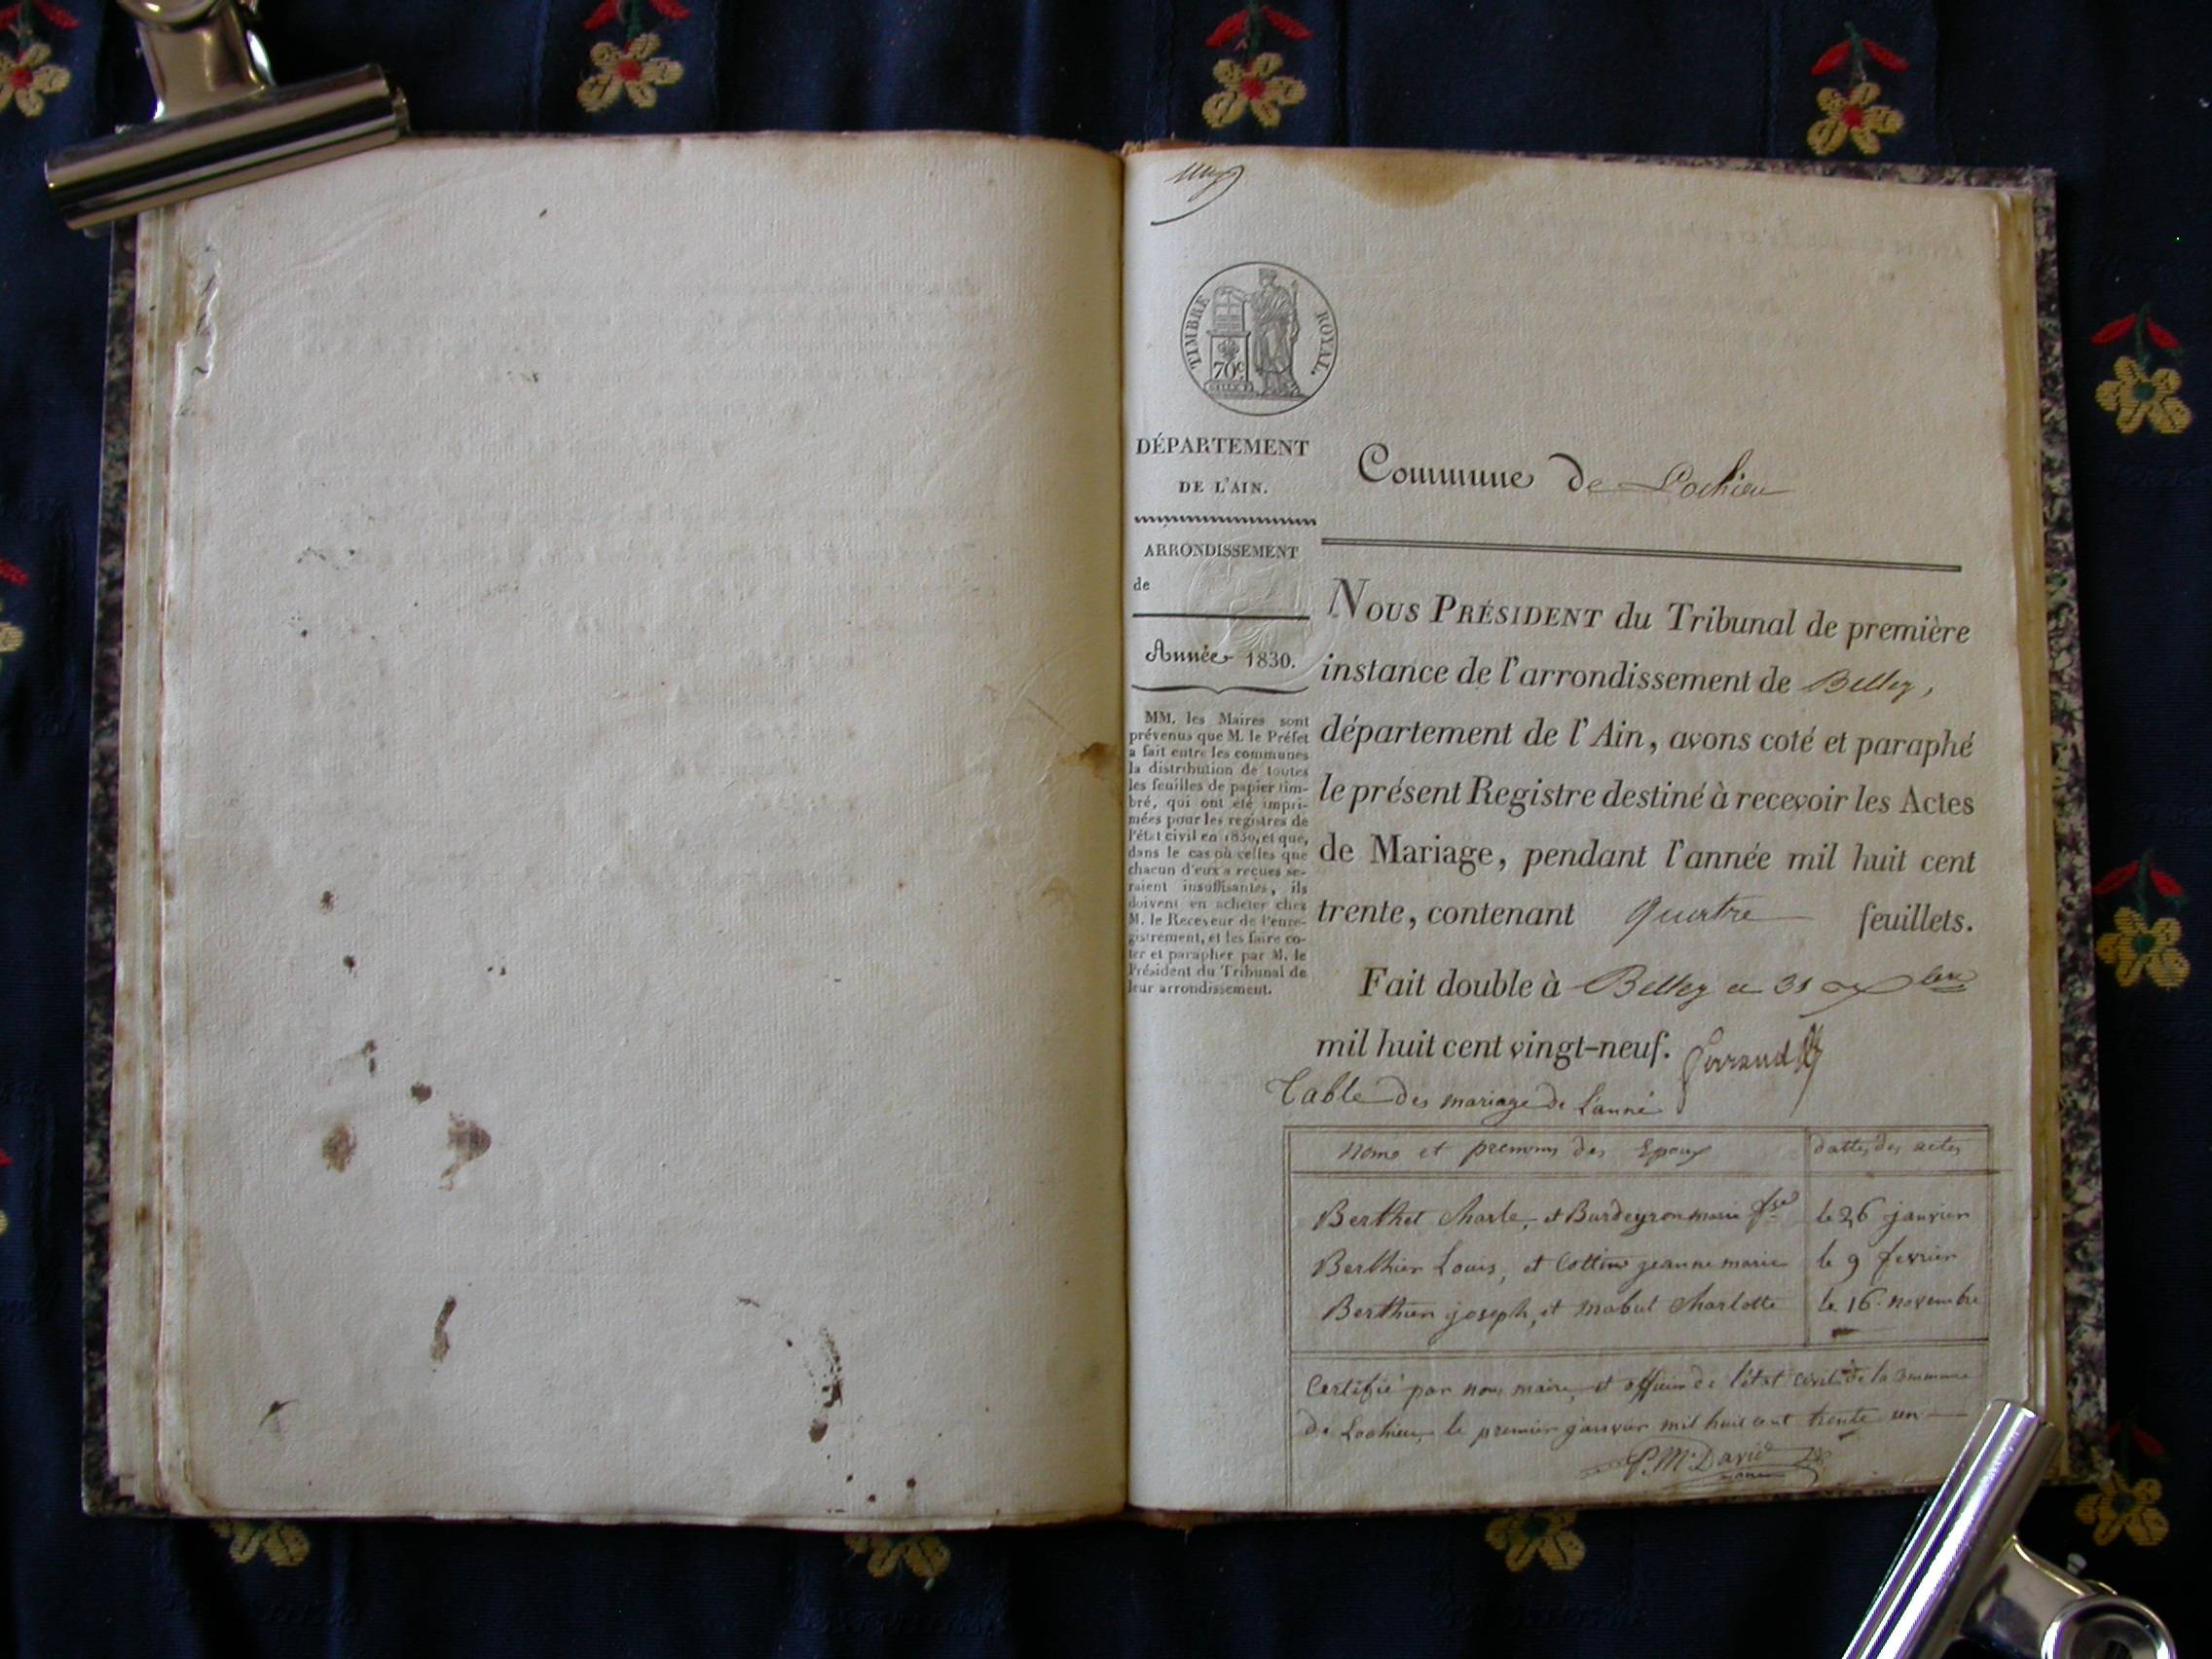 TIMBRE ROYAL.
70c
DÉPARTEMENT
DE L'AIN.
ARRONDISSEMENT
de
Année 1830.
MM. les Maires sont
prévenus que M. le Préfet
a fait entre les communes
la distribution de toutes
les feuilles de papier tim-
bré, qui ont été impri-
mées pour les registres de
l'état civil en 1830, et que,
dans le cas où celles que
chacun d'eux a reçues se-
raient insuffisantes, ils
doivent en acheter chez
M. le Receveur de l'enre-
gistrement, et les faire co-
ter et parapher par M. le
Président du Tribunal de
leur arrondissement.
Commune de Lochieu
NOUS PRÉSIDENT du Tribunal de première
instance de l'arrondissement de Belley,
département de l'Ain, avons coté et paraphé
le présent Registre destiné à recevoir les Actes
de Mariage, pendant l'année mil huit cent
trente, contenant quatre feuillets.
Fait double à Belley ce 31 xbre
mil huit cent vingt-neuf.
Table des mariage de l'anné
Noms et prenoms des Epoux dattes des actes
Berthet Charle, et Burdeyron marie fse le 26 janvier
Berthier Louis, et Cottin jeanne marie le 9 fevrier
Berthier joseph, et mabut Charlotte le 16 novembre
Certifié par nous maire et officier de l'état civil de la commune
de Lochieu, le premier janvier mil huit cent trente un
P. M. David
maire